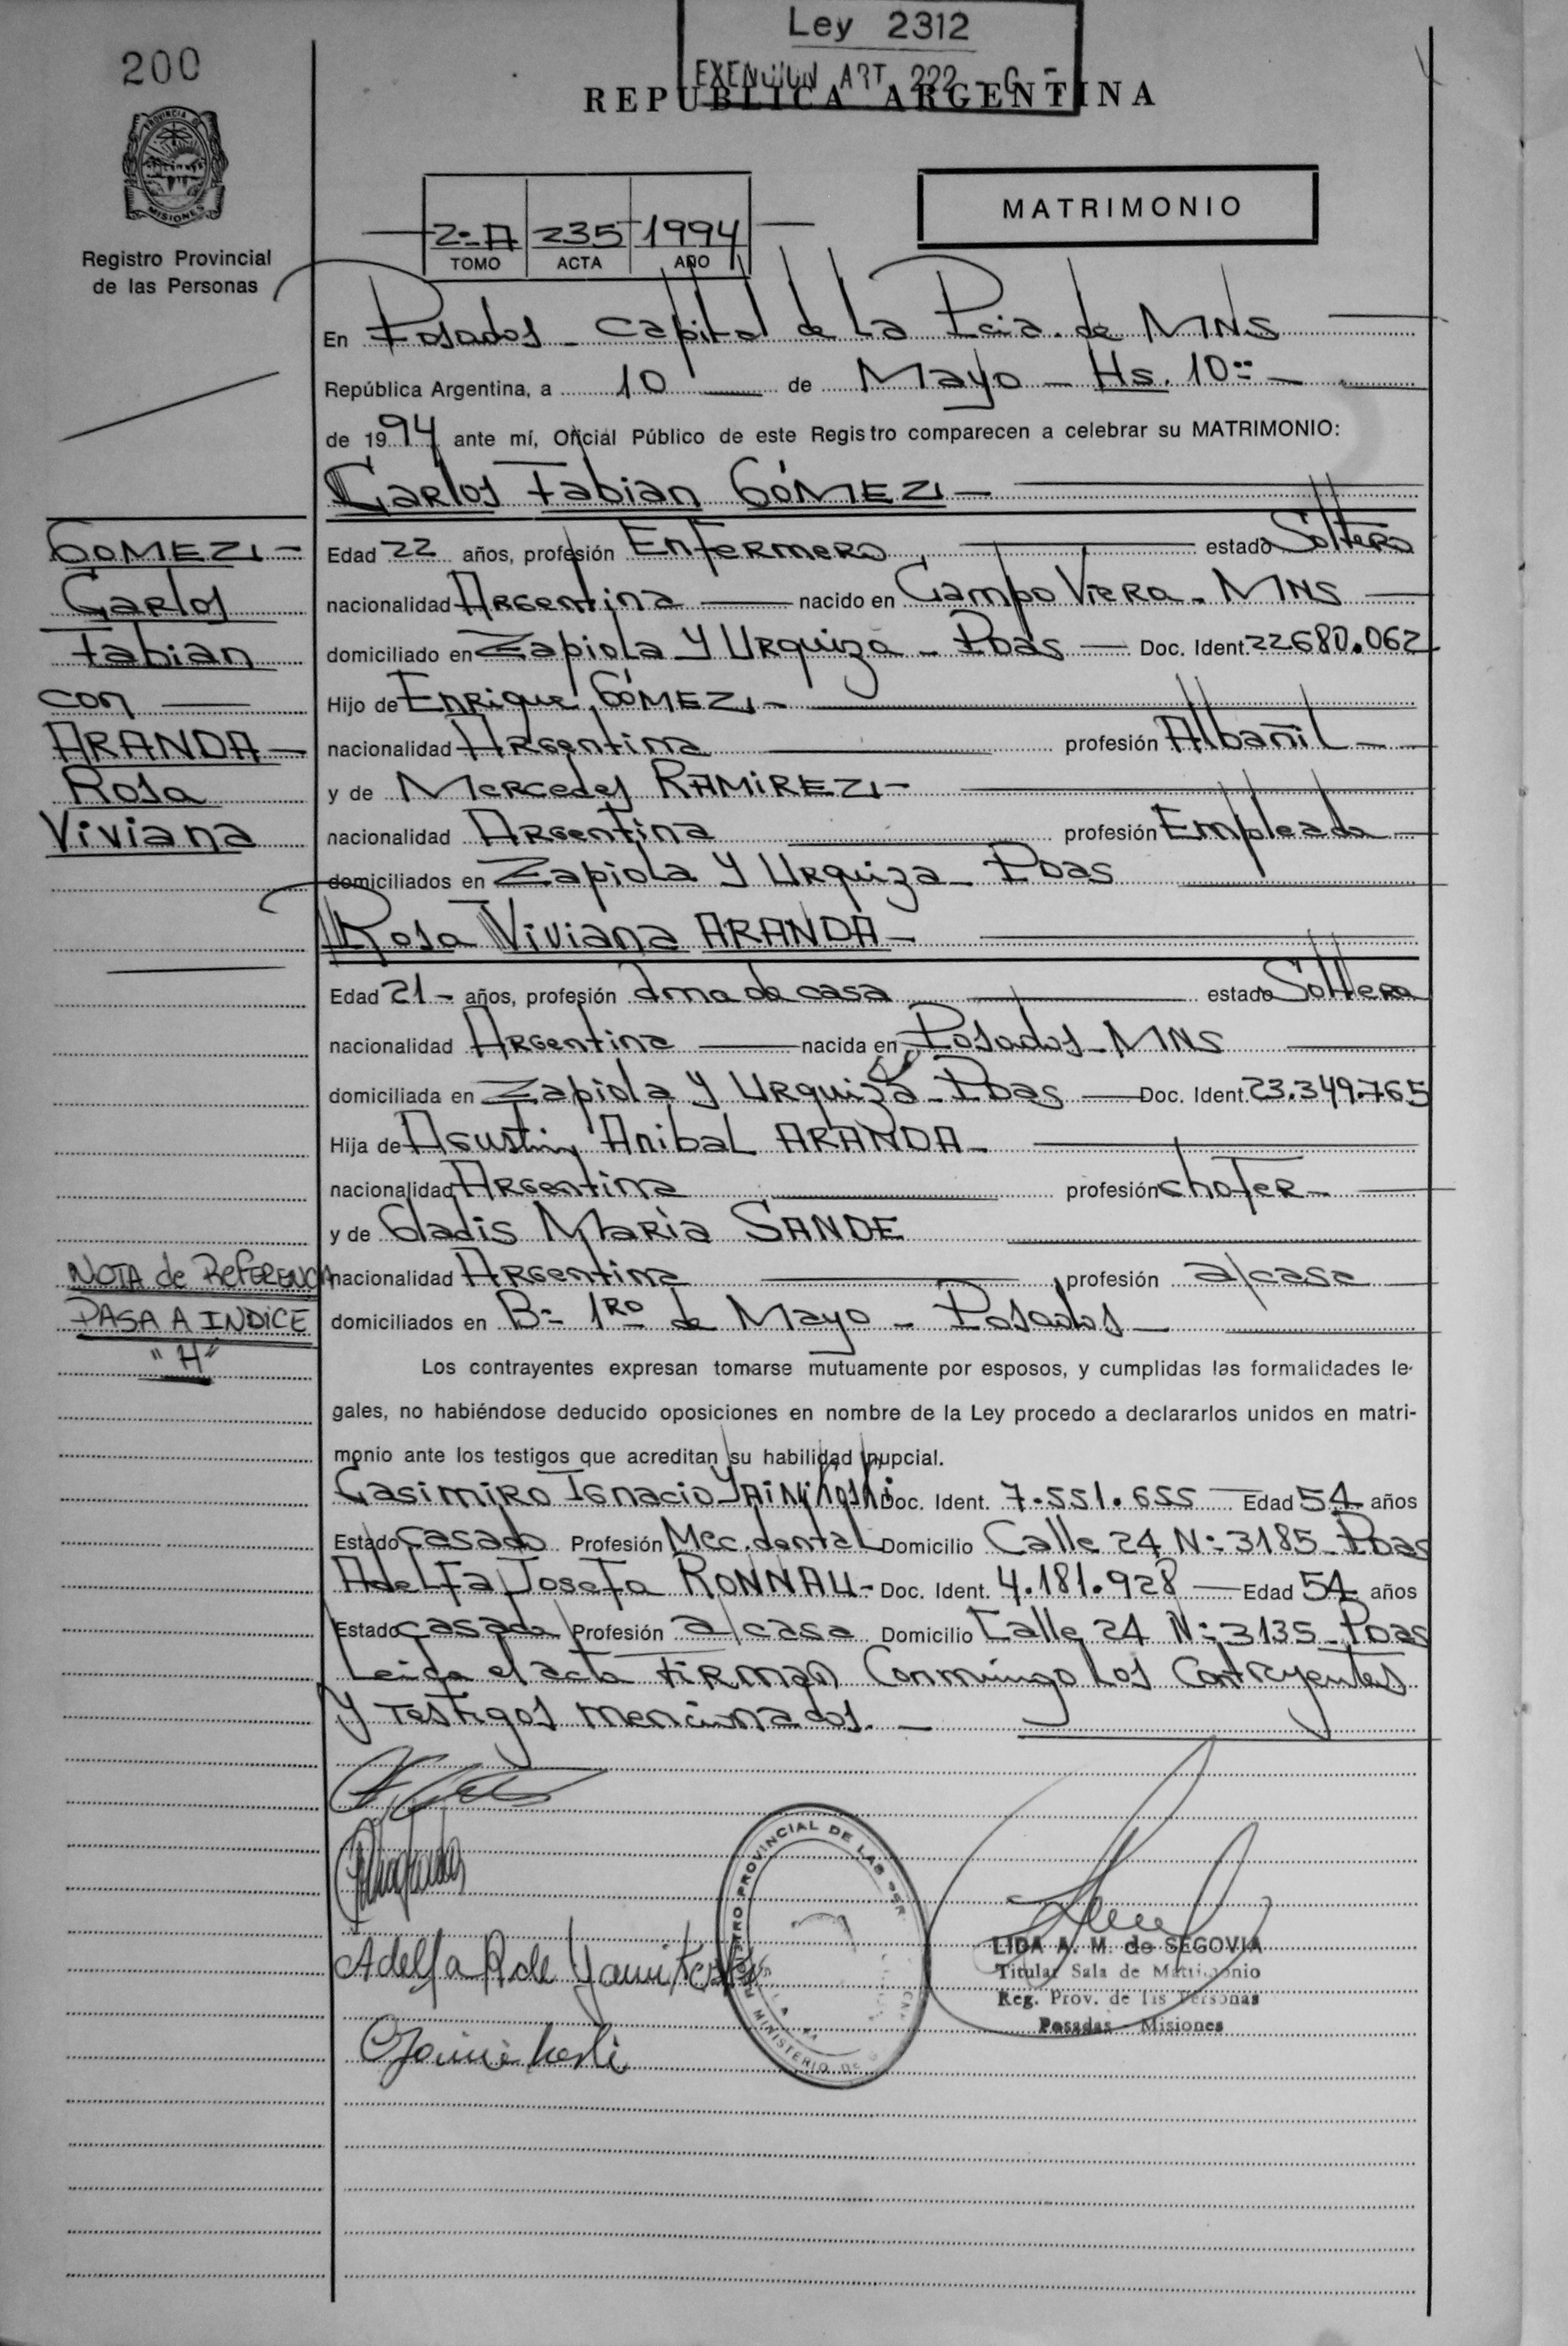 Ley 2312
EXENCION ART 222 - G -
200
REPUBLICA ARGENTINA
PROVINCIA DE
MISIONES
Registro Provincial
de las Personas
MATRIMONIO
2º A 235 1994
TOMO ACTA AÑO
En Posadas - Capital de La Pcia. de MNS
República Argentina, a 10 de Mayo - Hs. 10:
de 1994 ante mí, Oficial Público de este Registro comparecen a celebrar su MATRIMONIO:
Carlos Fabian GÓMEZ
GOMEZ
Carlos
Fabian
con
ARANDA
Rosa
Viviana
Edad 22 años, profesión Enfermero estado Soltero
nacionalidad Argentina nacido en Campo Viera - MNS
domiciliado en Zapiola y Urquiza - Pdas - Doc. Ident. 22680.062
Hijo de Enrique GÓMEZ
nacionalidad Argentina profesión Albañil
y de Mercedes RAMIREZ
nacionalidad Argentina profesión Empleada
domiciliados en Zapiola y Urquiza - Pdas
Rosa Viviana ARANDA
Edad 21 - años, profesión Ama de casa estado Soltera
nacionalidad Argentina nacida en Posadas - MNS
domiciliada en Zapiola y Urquiza - Pdas Doc. Ident. 23.349.765
Hija de Agustin Anibal ARANDA
nacionalidad Argentina profesión chofer
y de Gladis María SANDE
nacionalidad Argentina profesión a/casa
domiciliados en Bº 1RO de Mayo - Posadas
NOTA de REFERENCIA
PASA A INDICE
"H"
Los contrayentes expresan tomarse mutuamente por esposos, y cumplidas las formalidades le-
gales, no habiéndose deducido oposiciones en nombre de la Ley procedo a declararlos unidos en matri-
monio ante los testigos que acreditan su habilidad nupcial.
Casimiro Ignacio Doc. Ident. 7.551.655 Edad 54 años
Estado casado Profesión Mec. dental Domicilio Calle 24 Nº 3185 - Pdas
Adelfa Josefa RONNAU - Doc. Ident. 4.181.928 Edad 54 años
Estado casada Profesión a/casa Domicilio Calle 24 Nº 3135 - Pdas
Leida el acta Firman Conmigo Los Contrayentes
y Testigos mencionados. -
Adelfa R de
PROVINCIAL DE LAS PER
MINISTERIO DE
LIDA A. M. de SEGOVIA
Titular Sala de Matrimonio
Reg. Prov. de las Personas
Posadas - Misiones